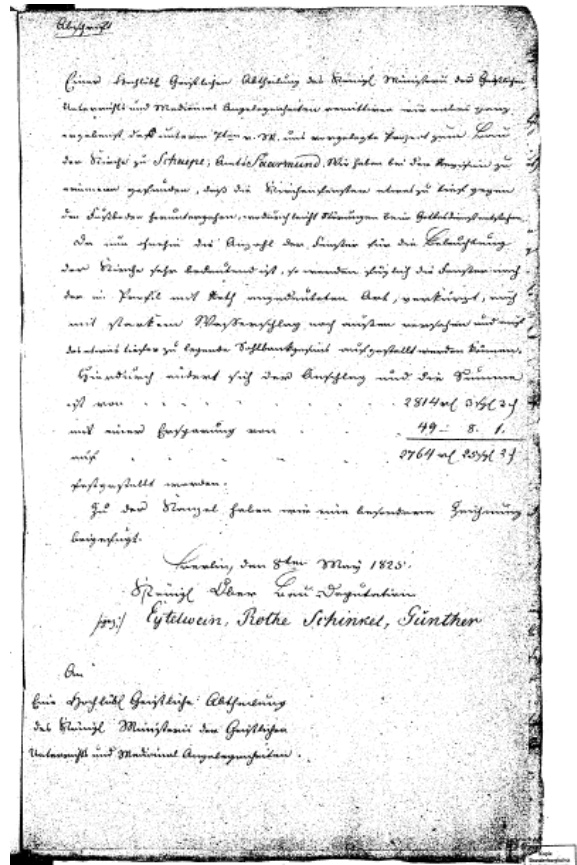 Abschrift
Einer Hochlöbl Geistlichen Abtheilung des Königl Ministerii der Geistlichen
Unterrichts und Medicinal Angelegenheiten remittiren wir anbei ganz
ergebenst das unterm v. M. uns vorgelegte Project zum Bau
der Kirche zu Schaepe, Amts Saarmund. Wir haben bei der Revision zu
erinnern gefunden, daß die Kirchenfenster etwas zu tief gegen
den Fußboden heruntergehen, wodurch leicht Störungen beim Gottesdienst entstehen.
Da nun ohnehin die Anzahl der Fenster für die Beleuchtung
der Kirche sehr bedeutend ist, so werden füglich die Fenster nach
der im Profil mit Roth angedeuteten Art, verkürzt, und
mit starkem Wasserschlag nach außen versehen und auf
das etwas tiefer zu legende Sohlbankgesims aufgestellt werden können.
Hierdurch ändert sich der Anschlag und die Summe
ist von 2814 rl 3 sgl 3 d
mit einer Ersparung von 49 - 8. 1.
auf 2764 rl 25 sgl 2 d
festgestellt worden.
Zu der Kanzel haben wir eine besondere Zeichnung
beigefügt.
Berlin, den 8ten May 1825.
Königl Ober Bau-Deputation
gez:/ Eytelwein, Rothe Schinkel, Günther
An
Eine Hochlöbl Geistliche Abtheilung
des Königl Ministerii der Geistlichen
Unterrichts und Medicinal Angelegenheiten.